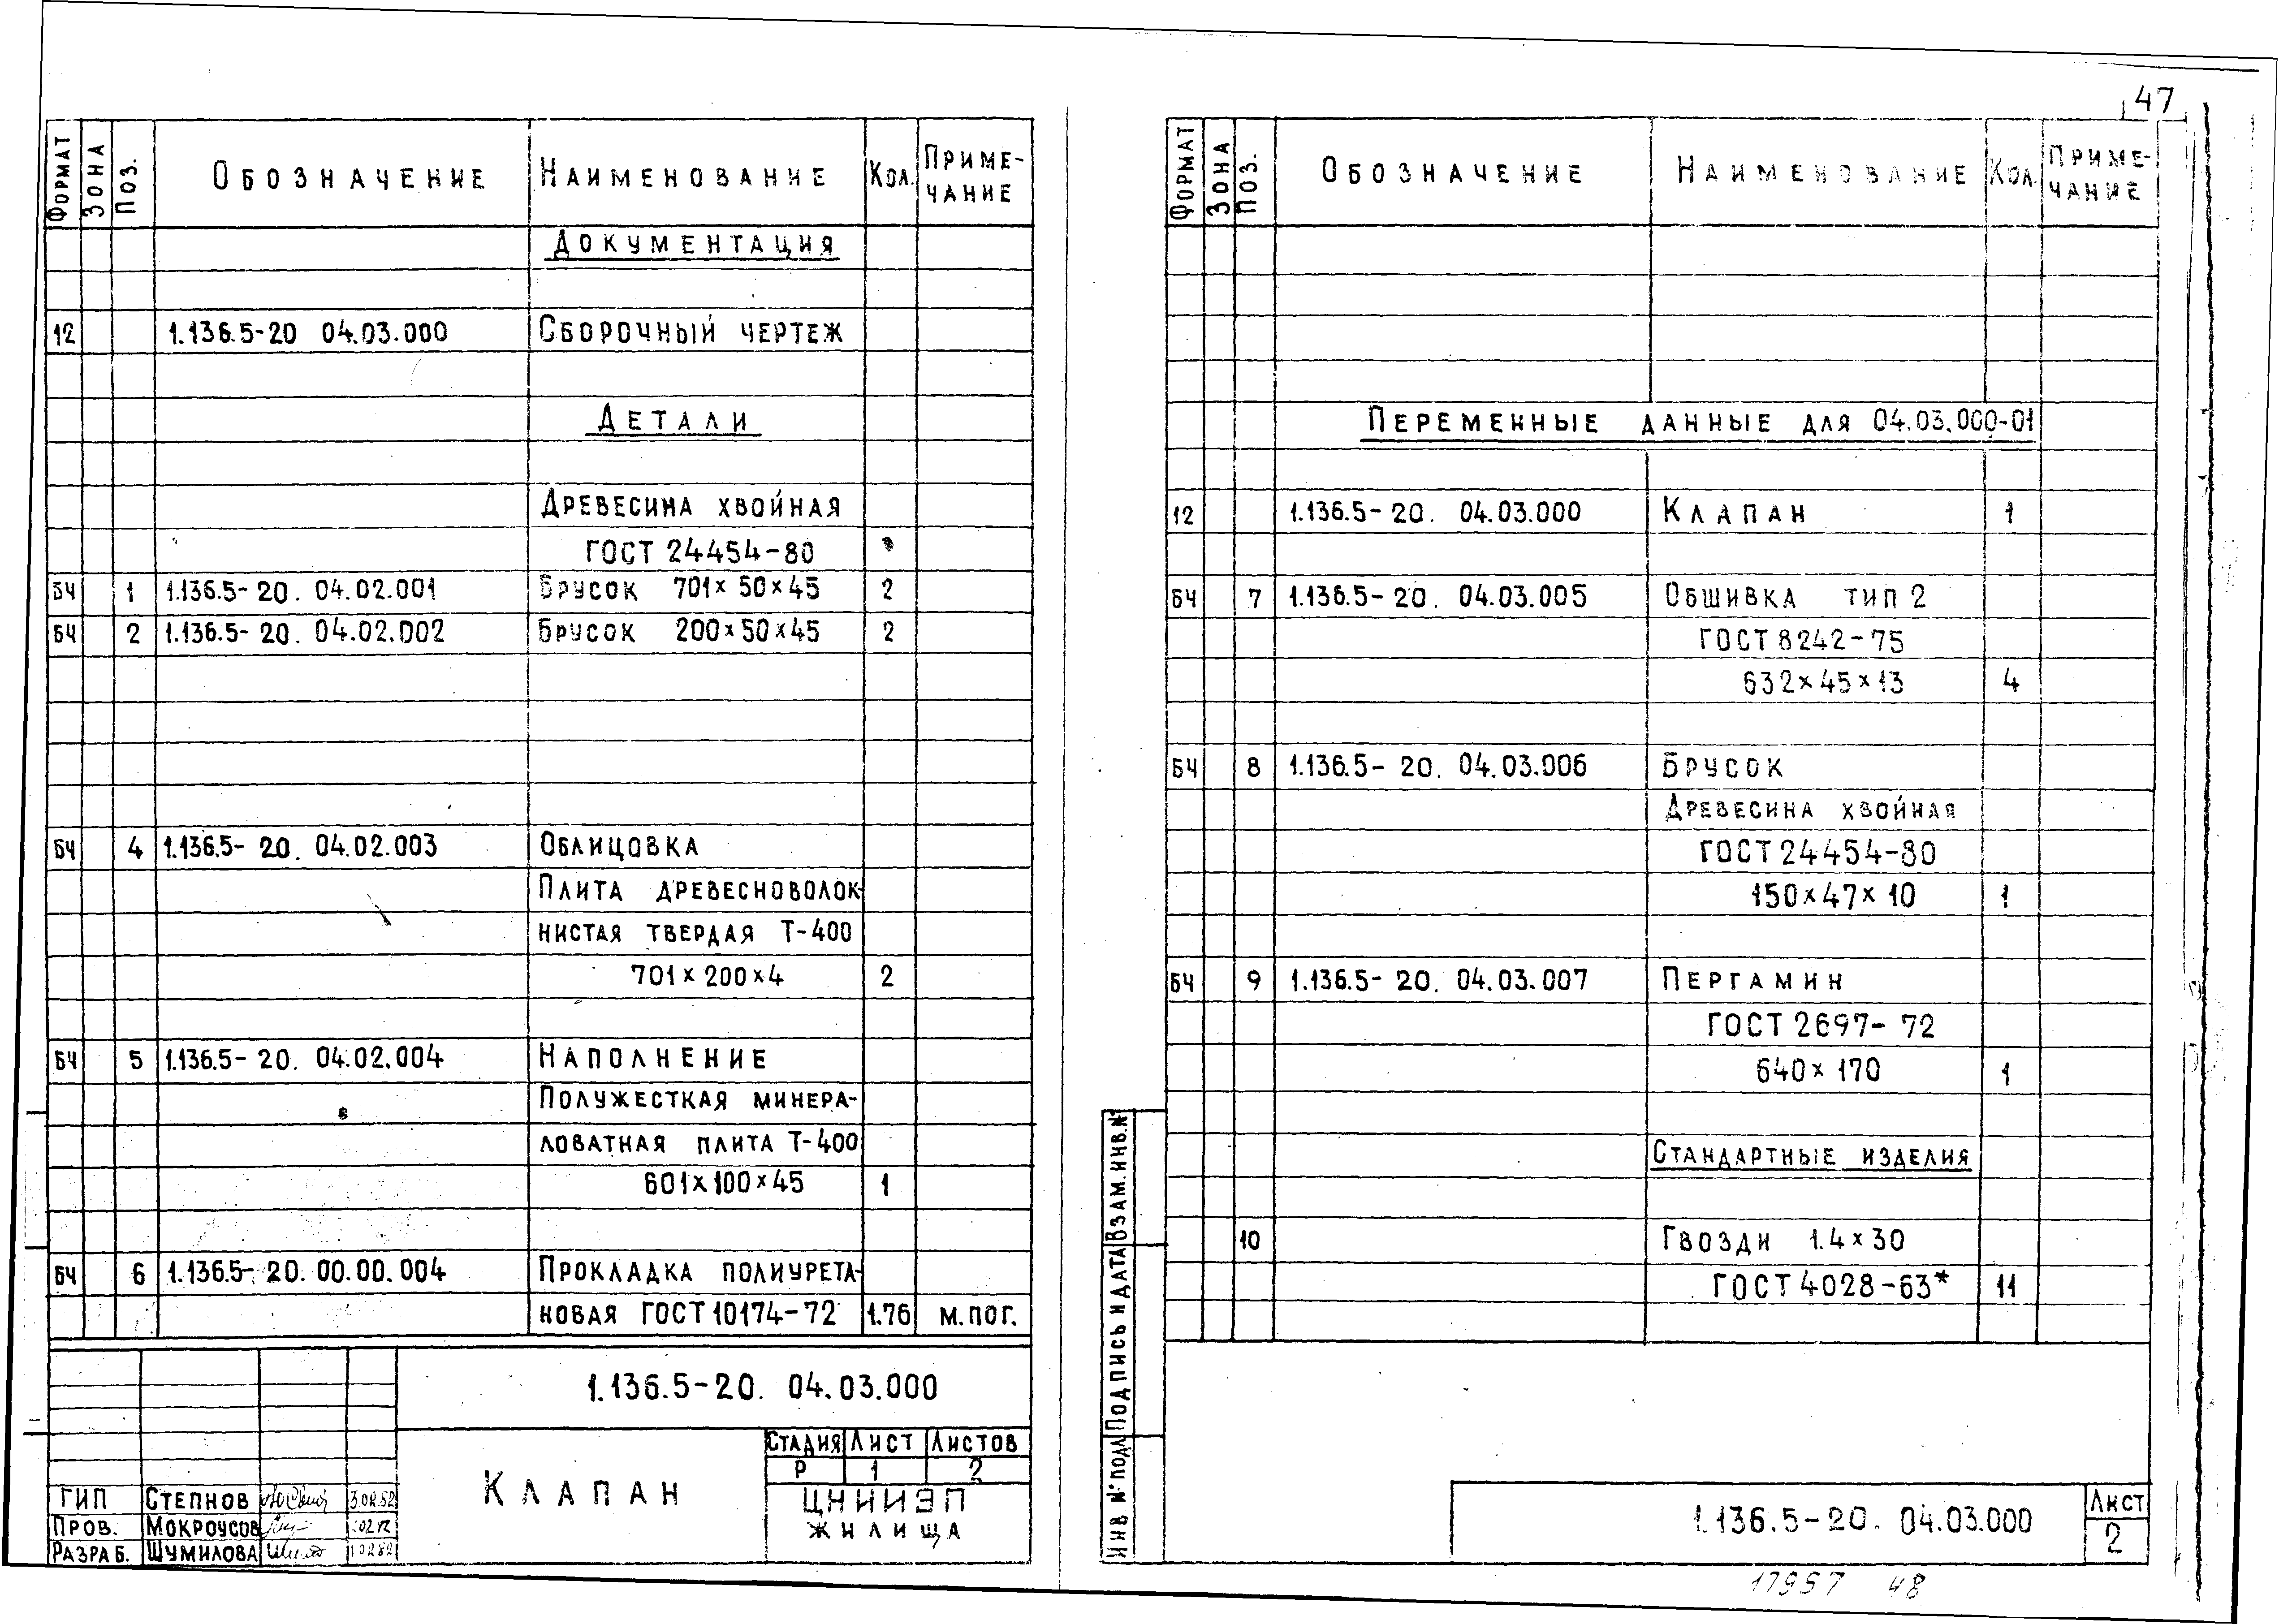 47
ФОРМАТ ЗОНА ПОЗ. ОБОЗНАЧЕНИЕ НАИМЕНОВАНИЕ КОЛ. ПРИМЕ-
ЧАНИЕ
ДОКУМЕНТАЦИЯ
12 1.136.5-20 04.03.000 СБОРОЧНЫЙ ЧЕРТЕЖ
ДЕТАЛИ
ДРЕВЕСИНА ХВОЙНАЯ
ГОСТ 24454-80
БЧ 1 1.136.5-20. 04.02.001 БРУСОК 701×50×45 2
БЧ 2 1.136.5-20. 04.02.002 БРУСОК 200×50×45 2
БЧ 4 1.136.5-20. 04.02.003 ОБЛИЦОВКА
ПЛИТА ДРЕВЕСНОВОЛОК-
НИСТАЯ ТВЕРДАЯ Т-400
701×200×4 2
БЧ 5 1.136.5-20. 04.02.004 НАПОЛНЕНИЕ
ПОЛУЖЕСТКАЯ МИНЕРА-
ЛОВАТНАЯ ПЛИТА Т-400
601×100×45 1
БЧ 6 1.136.5-20.00.00.004 ПРОКЛАДКА ПОЛИУРЕТА-
НОВАЯ ГОСТ 10174-72 1.76 М.ПОГ.
1.136.5-20. 04.03.000
КЛАПАН
СТАДИЯ ЛИСТ ЛИСТОВ
Р 1 2
ЦНИИЭП
ЖИЛИЩА
ГИП СТЕПНОВ
ПРОВ. МОКРОУСОВ
РАЗРАБ. ШУМИЛОВА
ФОРМАТ ЗОНА ПОЗ. ОБОЗНАЧЕНИЕ НАИМЕНОВАНИЕ КОЛ. ПРИМЕ-
ЧАНИЕ
ПЕРЕМЕННЫЕ ДАННЫЕ ДЛЯ 04.03.000-01
12 1.136.5-20. 04.03.000 КЛАПАН 1
БЧ 7 1.136.5-20. 04.03.005 ОБШИВКА ТИП 2
ГОСТ 8242-75
632×45×13 4
БЧ 8 1.136.5-20. 04.03.006 БРУСОК
ДРЕВЕСИНА ХВОЙНАЯ
ГОСТ 24454-80
150×47×10 1
БЧ 9 1.136.5-20. 04.03.007 ПЕРГАМИН
ГОСТ 2697-72
640×170 1
СТАНДАРТНЫЕ ИЗДЕЛИЯ
10 ГВОЗДИ 1.4×30
ГОСТ 4028-63* 11
ИНВ № ПОДЛ ПОДПИСЬ И ДАТА ВЗАМ.ИНВ.№
1.136.5-20. 04.03.000
ЛИСТ
2
17957 48